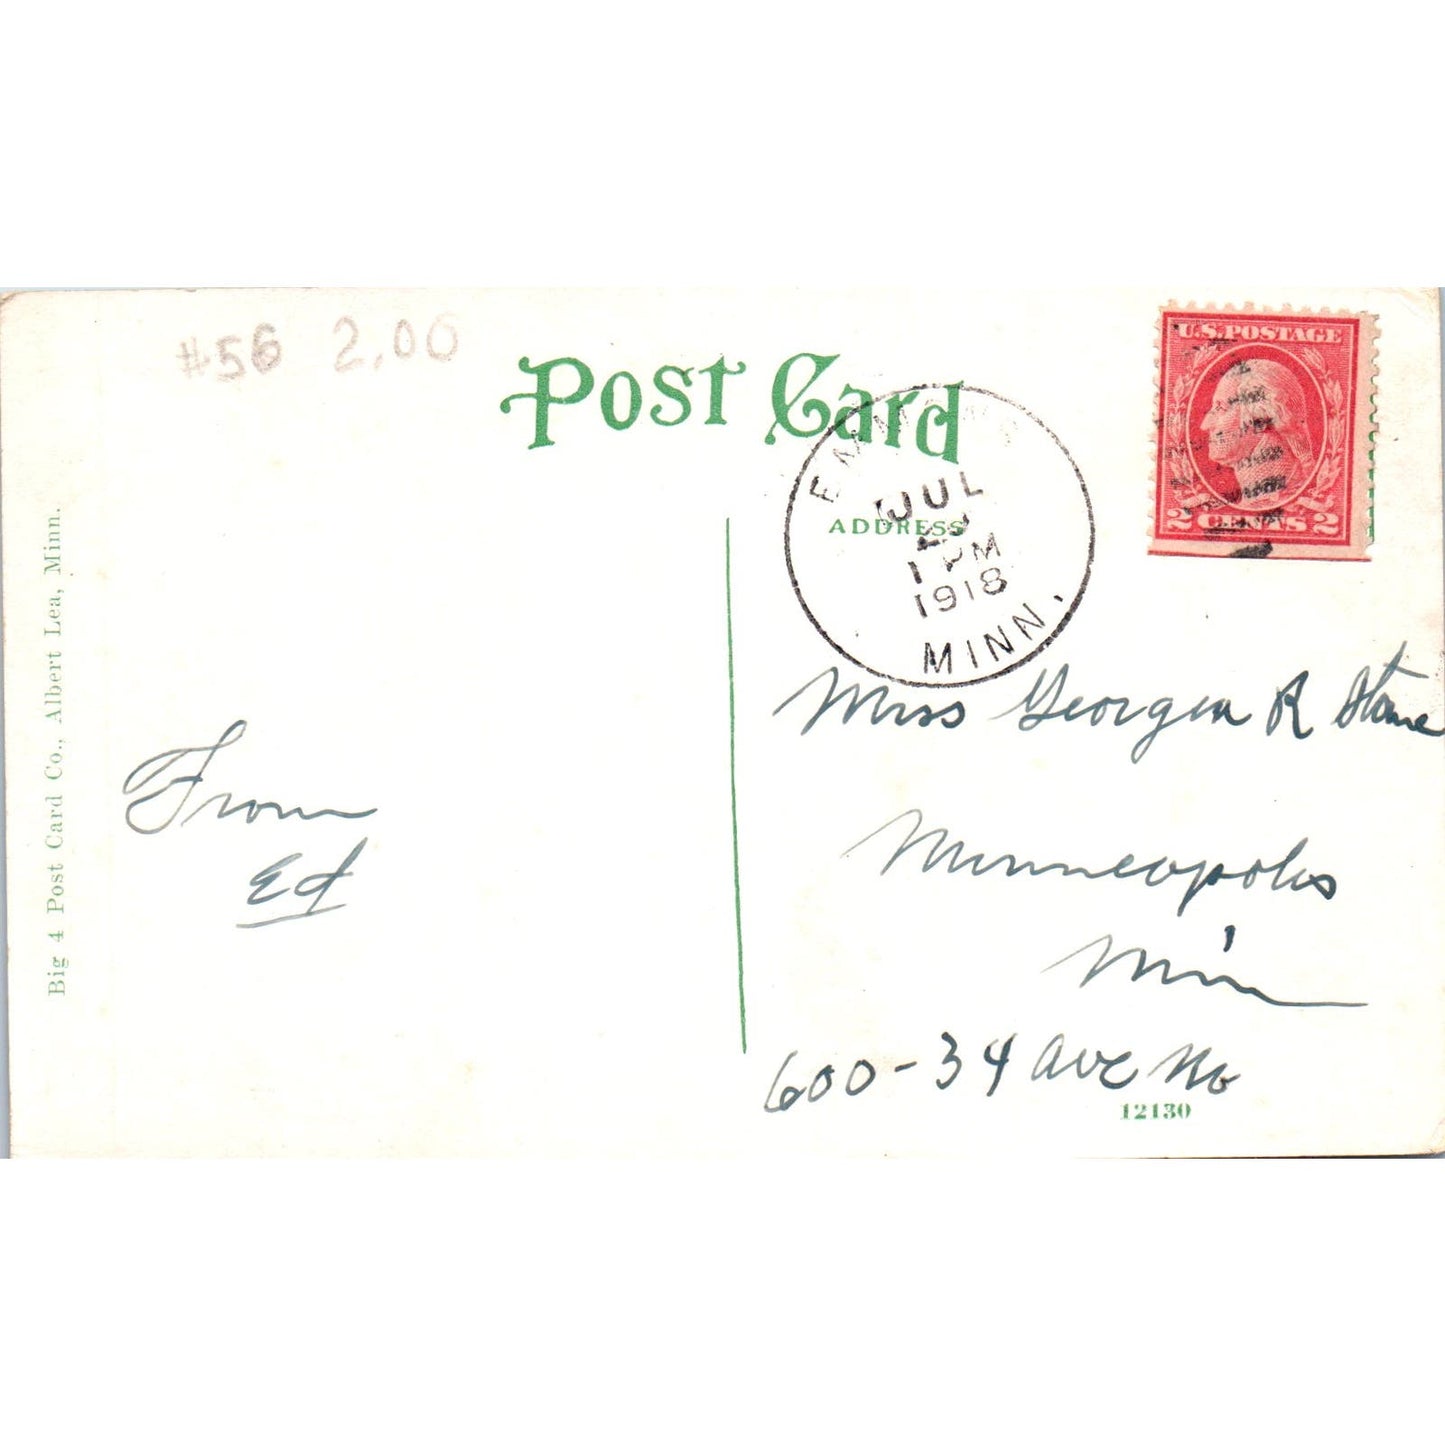 #56 2.00
Post Card
U.S. POSTAGE
2 CENTS 2
ADDRESS
JUL
1 PM
1918
MINN.
Big 4 Post Card Co., Albert Lea, Minn.
From
Ed
Miss Georgia R Stone
Minneapolis
Minn
600-34 Ave No
12130